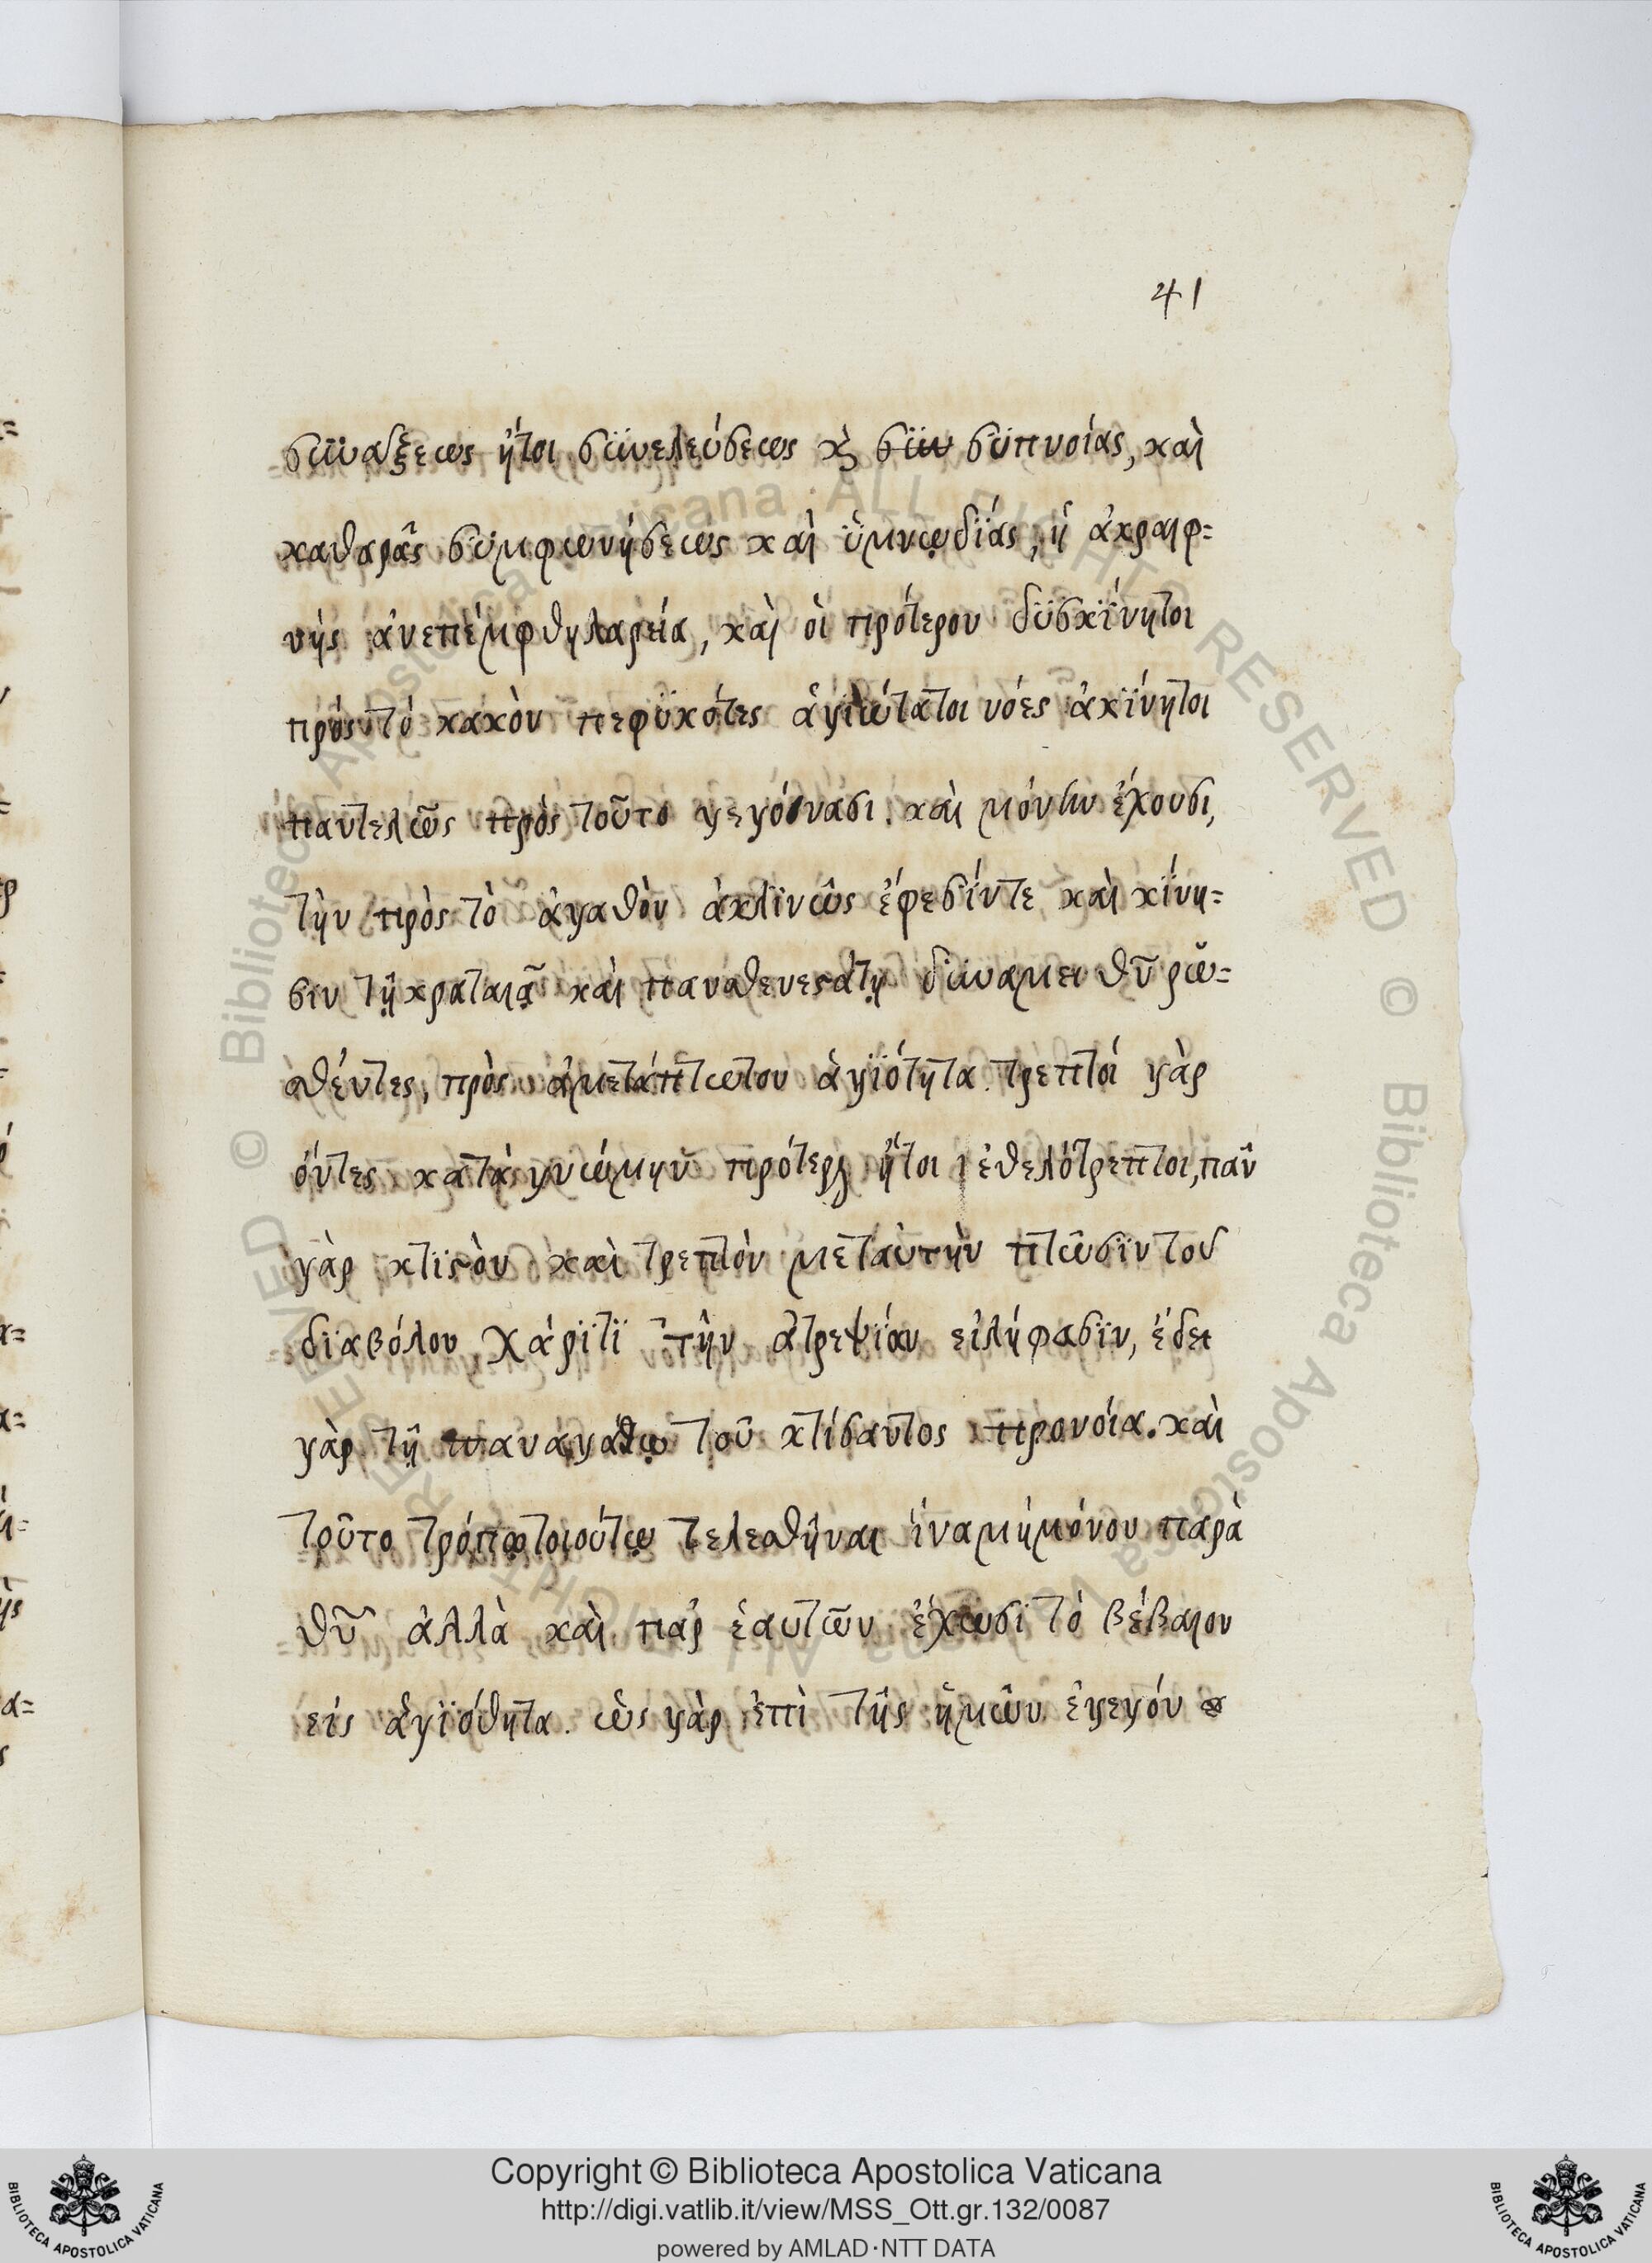 41
συνάξεως ἤτοι συνελεύσεως κ συν συπνοίας, καὶ
καθαρᾶς συμφωνήσεως καὶ ὑμνῳδίας, ἡ ἀκραιφ=
νής ἀνεπέμφθη λαρεία, καὶ οἱ πρότερον δϋσκΐνητοι
πρὸς τὸ κακὸν πεφϋκότες ἁγιώτατοι νόες ἀκΐνητοι
παντελῶς πρὸς τοῦτο γεγόνασι. καὶ μόνην ἔχουσι,
τὴν πρὸς τὸ ἀγαθὸν ἀκλϊνῶς ἔφεσίντε καὶ κΐνη=
σιν τῇ κραταιᾷ καὶ πανσθενεστάτῃ δυνάμει θῦ ρω=
σθέντες, πρὸς ἀμετάπτωτον ἁγϊότητα. τρεπτοί γὰρ
όντες κατὰ γνώμην πρότερον ἤτοι ἐθελότρεπτοι, πᾶν
γὰρ κτϊστὸν καὶ τρεπτὸν μεταὐτὴν πτῶσϊν τοῦ
δϊαβόλου χάρϊτϊ τὴν ἀτρεψΐαν εἰλήφασϊν, ἔδει
γὰρ τῇ παναγάθῳ τοῦ κτίσαντος προνοία. καὶ
τοῦτο τρόπῳ τοιούτῳ τελεσθῆναι ἵναμὴμόνον παρὰ
θῦ ἀλλὰ καὶ παρ ἑαυτῶν ἔχωσι τὸ βέβαιον
εἰς ἁγϊόθητα. ὡς γὰρ ἐπὶ τῆς ἡμῶν ἐγεγόν ει
Copyright © Biblioteca Apostolica Vaticana
http://digi.vatlib.it/view/MSS_Ott.gr.132/0087
powered by AMLAD·NTT DATA
BIBLIOTECA APOSTOLICA VATICANA
BIBLIOTECA APOSTOLICA VATICANA